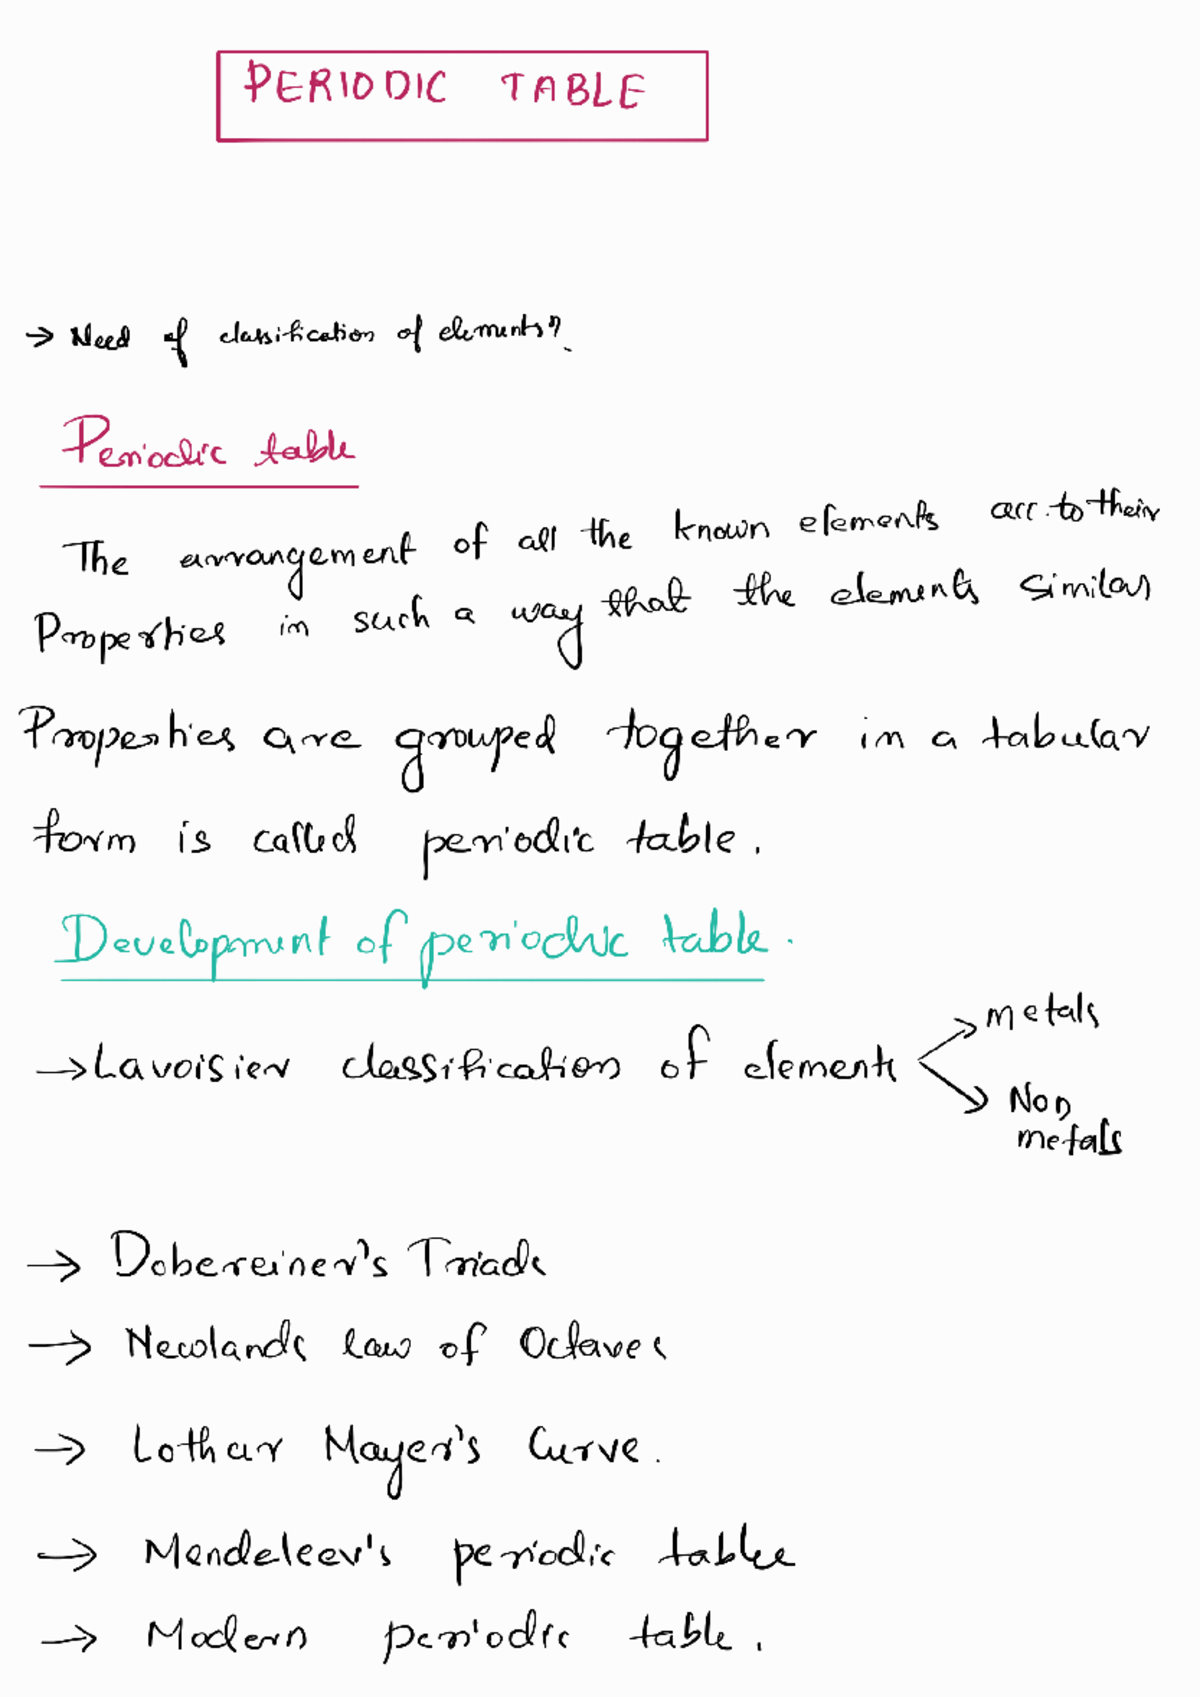 PERIODIC TABLE
→ Need of classification of elements?
Periodic table
The arrangement of all the known elements acc. to their
Properties in such a way that the elements similar
Properties are grouped together in a tabular
form is called periodic table.
Development of periodic table.
→ Lavoisier classification of elements
→ metals
→ Non
metals
→ Dobereiner's Triads
→ Newlands law of Octaves
→ Lothar Mayer's Curve.
→ Mendeleev's periodic table
→ Modern periodic table.